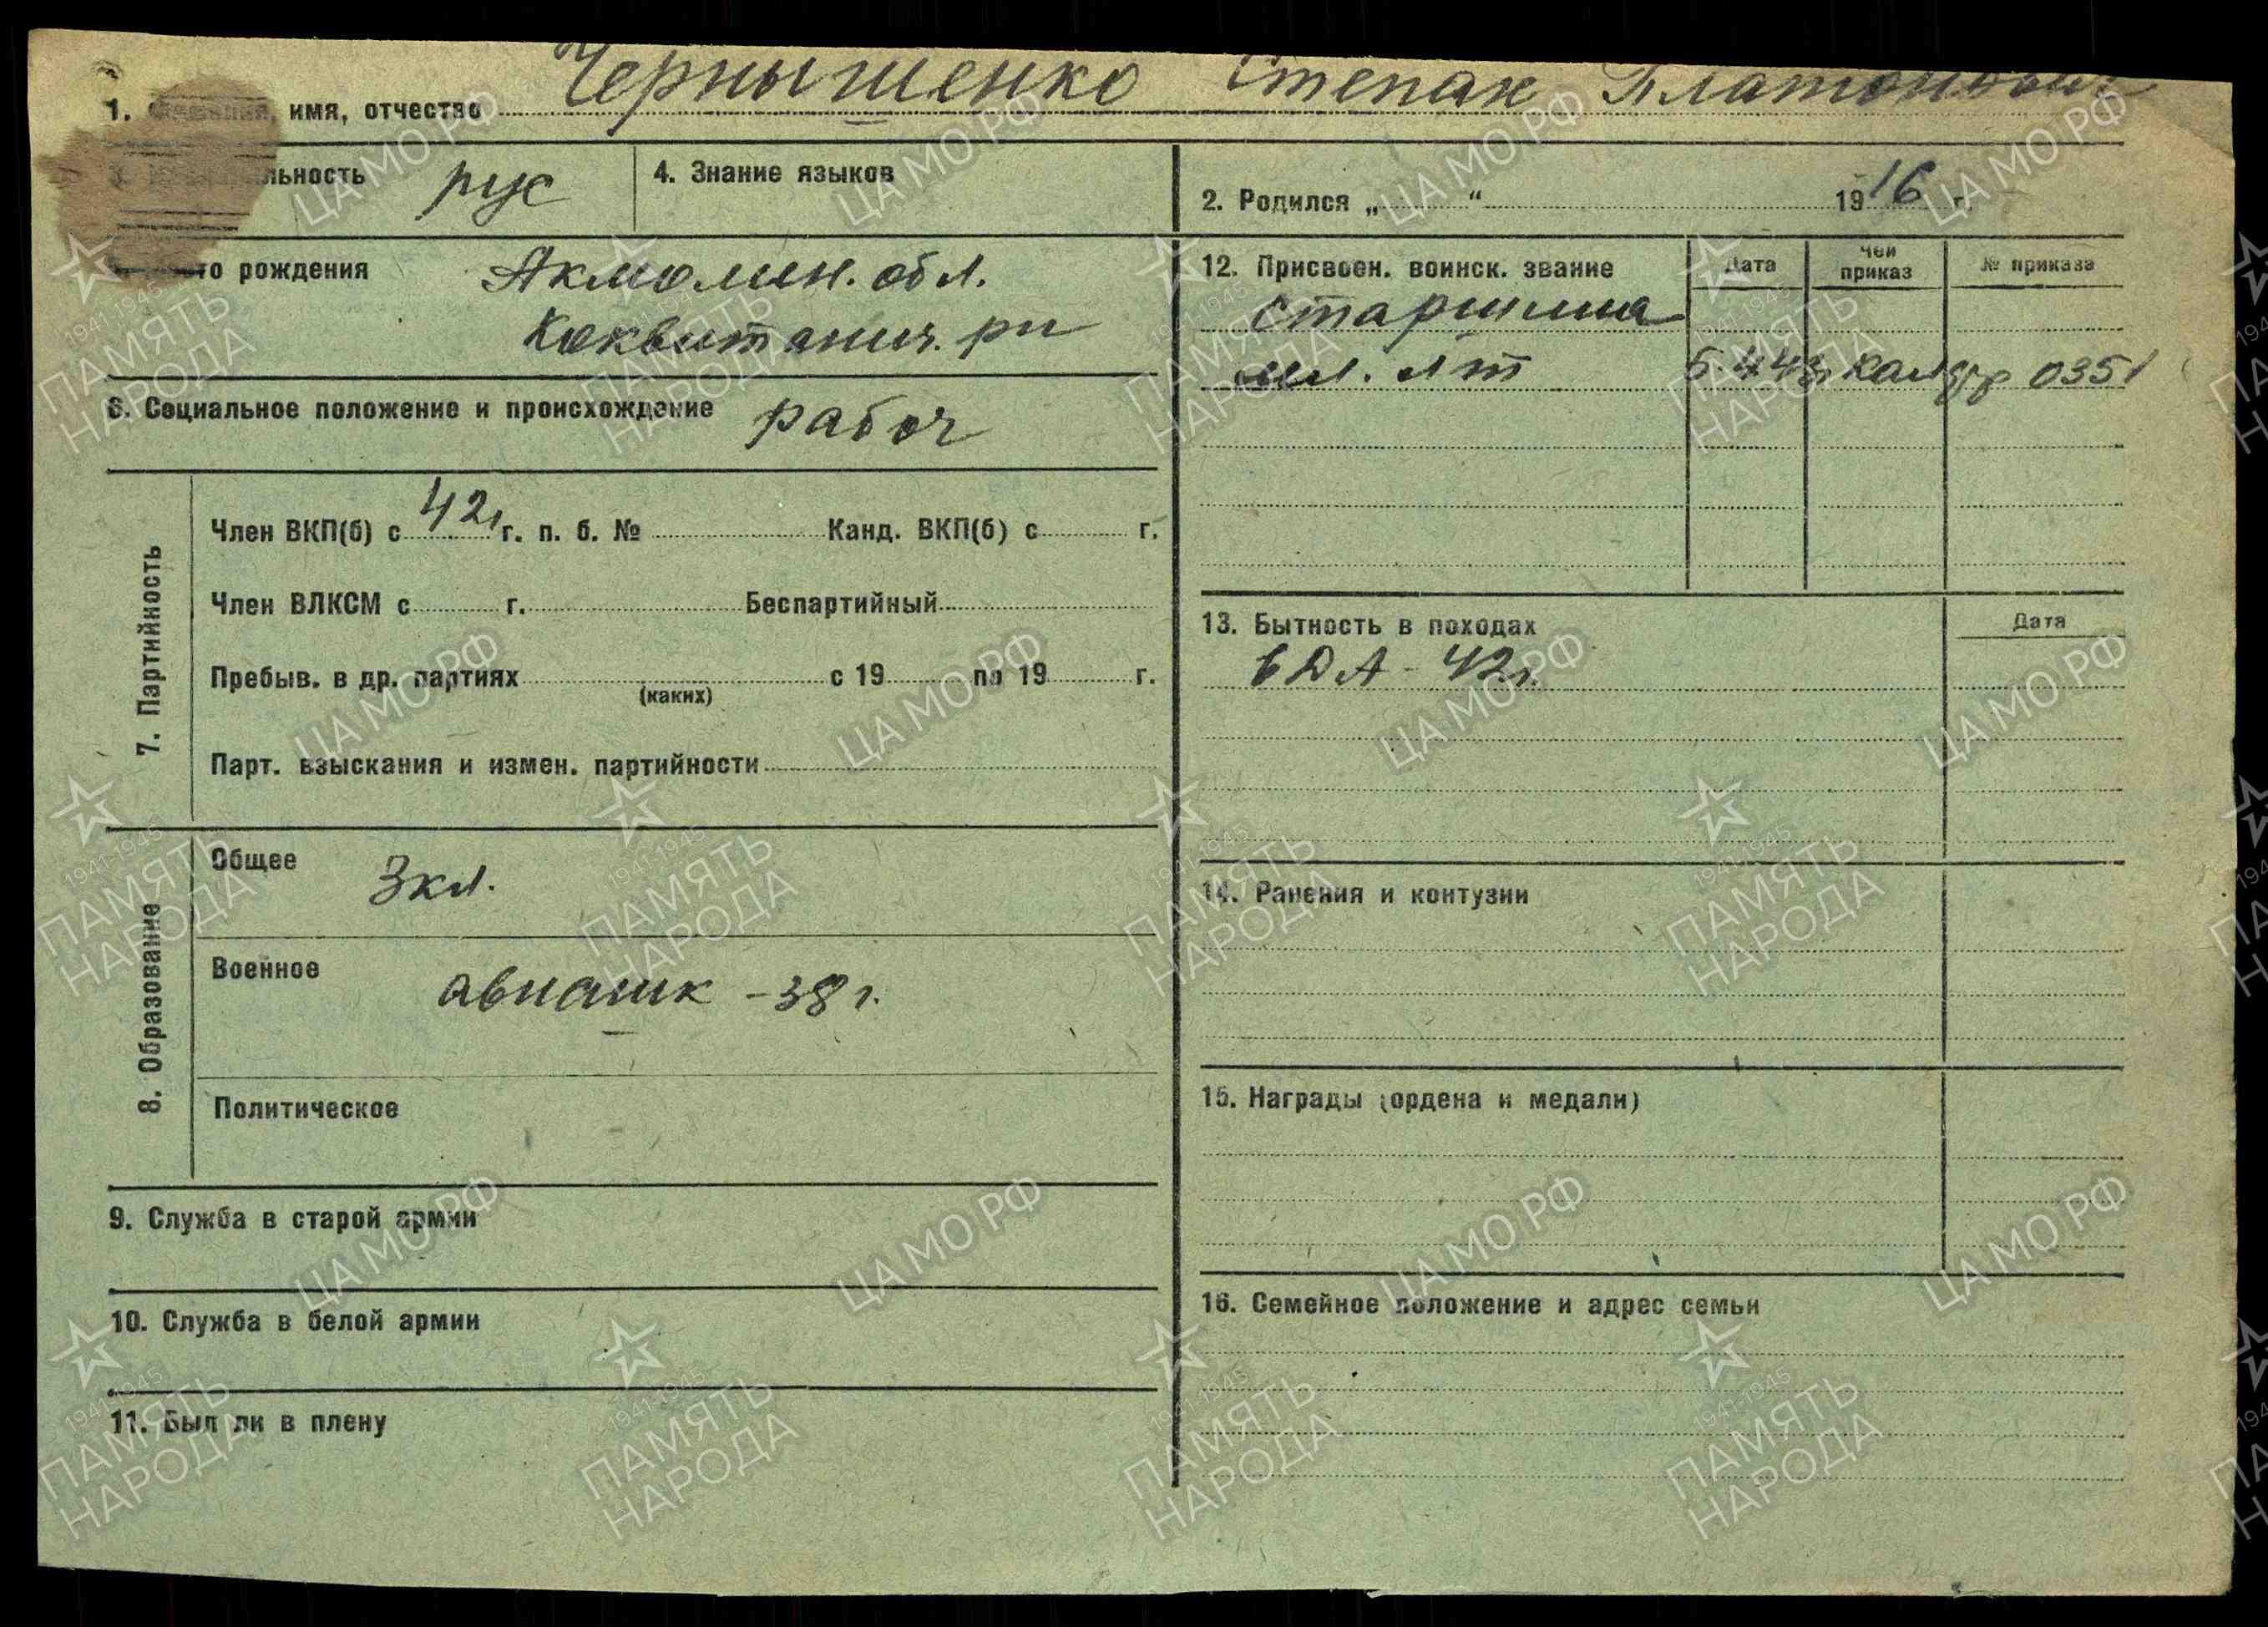 1. Фамилия, имя, отчество Чернышенко Степан Платонович
льность рус
4. Знание языков
2. Родился „ “ 1916 г.
то рождения Акмолин. обл.
рп
6. Социальное положение и происхождение рабоч
7. Партийность
Член ВКП(б) с 42г г. п. б. № Канд. ВКП(б) с г.
Член ВЛКСМ с г. Беспартийный
Пребыв. в др. партиях с 19 по 19 г.
(каких)
Парт. взыскания и измен. партийности
8. Образование
Общее 3кл.
Военное авиашк - 38 г.
Политическое
9. Служба в старой армии
10. Служба в белой армии
11. Был ли в плену
12. Присвоен. воинск. звание Дата Чей приказ № приказа
старшина
мл. лт 5.4.43г 0351
13. Бытность в походах Дата
42г.
14. Ранения и контузии
15. Награды (ордена и медали)
16. Семейное положение и адрес семьи
ЦА МО РФ
1941-1945
ПАМЯТЬ
НАРОДА